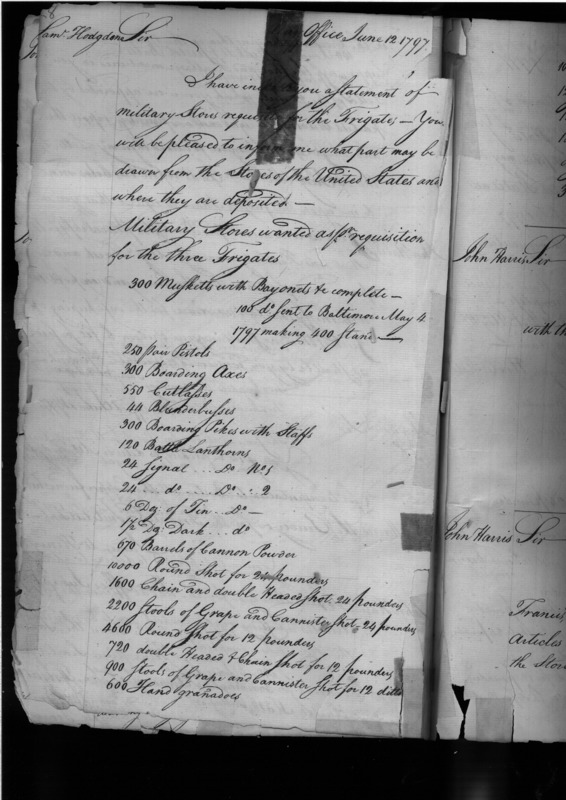 Office June 12 1797.
Saml. Hodgdon Sir
I have inclosed you a statement of
military Stores required for the Frigates — You
will be pleased to inform me what part may be
drawn from the Stores of the United States and
where they are deposited —
Military Stores wanted as pr. requisition
for the Three Frigates
300 Musketts with Bayonets &c complete —
100 do. sent to Baltimore May 4
1797 making 400 Stand —
250 pair Pistols
300 Boarding Axes
550 Cutlasses
44 Blunderbusses
300 Boarding Pikes with Staffs
120 Battle Lanthorns
24 Signal ... Do No. 1
24 ... do ..... Do .. 2
6 Doz: of Tin .. Do —
1½ Doz: Dark .. do
670 Barrels of Cannon Powder
10000 Round Shot for 24 pounders
1600 Chain and double Headed Shot 24 pounders
2200 Stools of Grape and Cannister Shot 24 pounders
4600 Round Shot for 12 pounders
720 double Headed & Chain Shot for 12 pounders
900 Stools of Grape and Cannister Shot for 12 ditto
600 Hand granadoes
John Harris Sir
with th
John Harris Sir
Francis
Articles
the Store